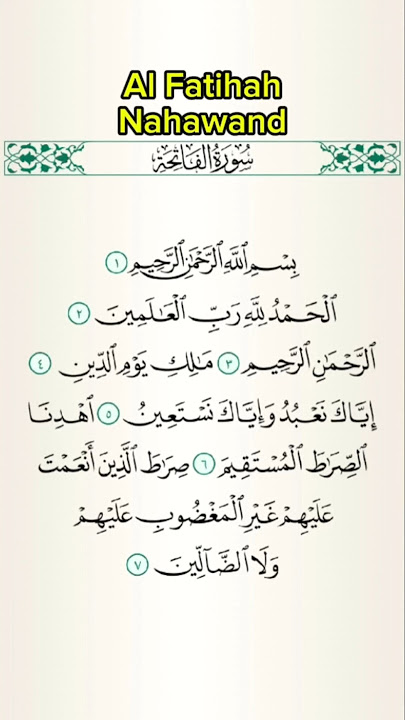 Al Fatihah
Nahawand
سُورَةُ الْفَاتِحَةِ
بِسْمِ ٱللَّهِ ٱلرَّحْمَٰنِ ٱلرَّحِيمِ ١
ٱلْحَمْدُ لِلَّهِ رَبِّ ٱلْعَٰلَمِينَ ٢
ٱلرَّحْمَٰنِ ٱلرَّحِيمِ ٣ مَٰلِكِ يَوْمِ ٱلدِّينِ ٤
إِيَّاكَ نَعْبُدُ وَإِيَّاكَ نَسْتَعِينُ ٥ ٱهْدِنَا
ٱلصِّرَٰطَ ٱلْمُسْتَقِيمَ ٦ صِرَٰطَ ٱلَّذِينَ أَنْعَمْتَ
عَلَيْهِمْ غَيْرِ ٱلْمَغْضُوبِ عَلَيْهِمْ
وَلَا ٱلضَّآلِّينَ ٧